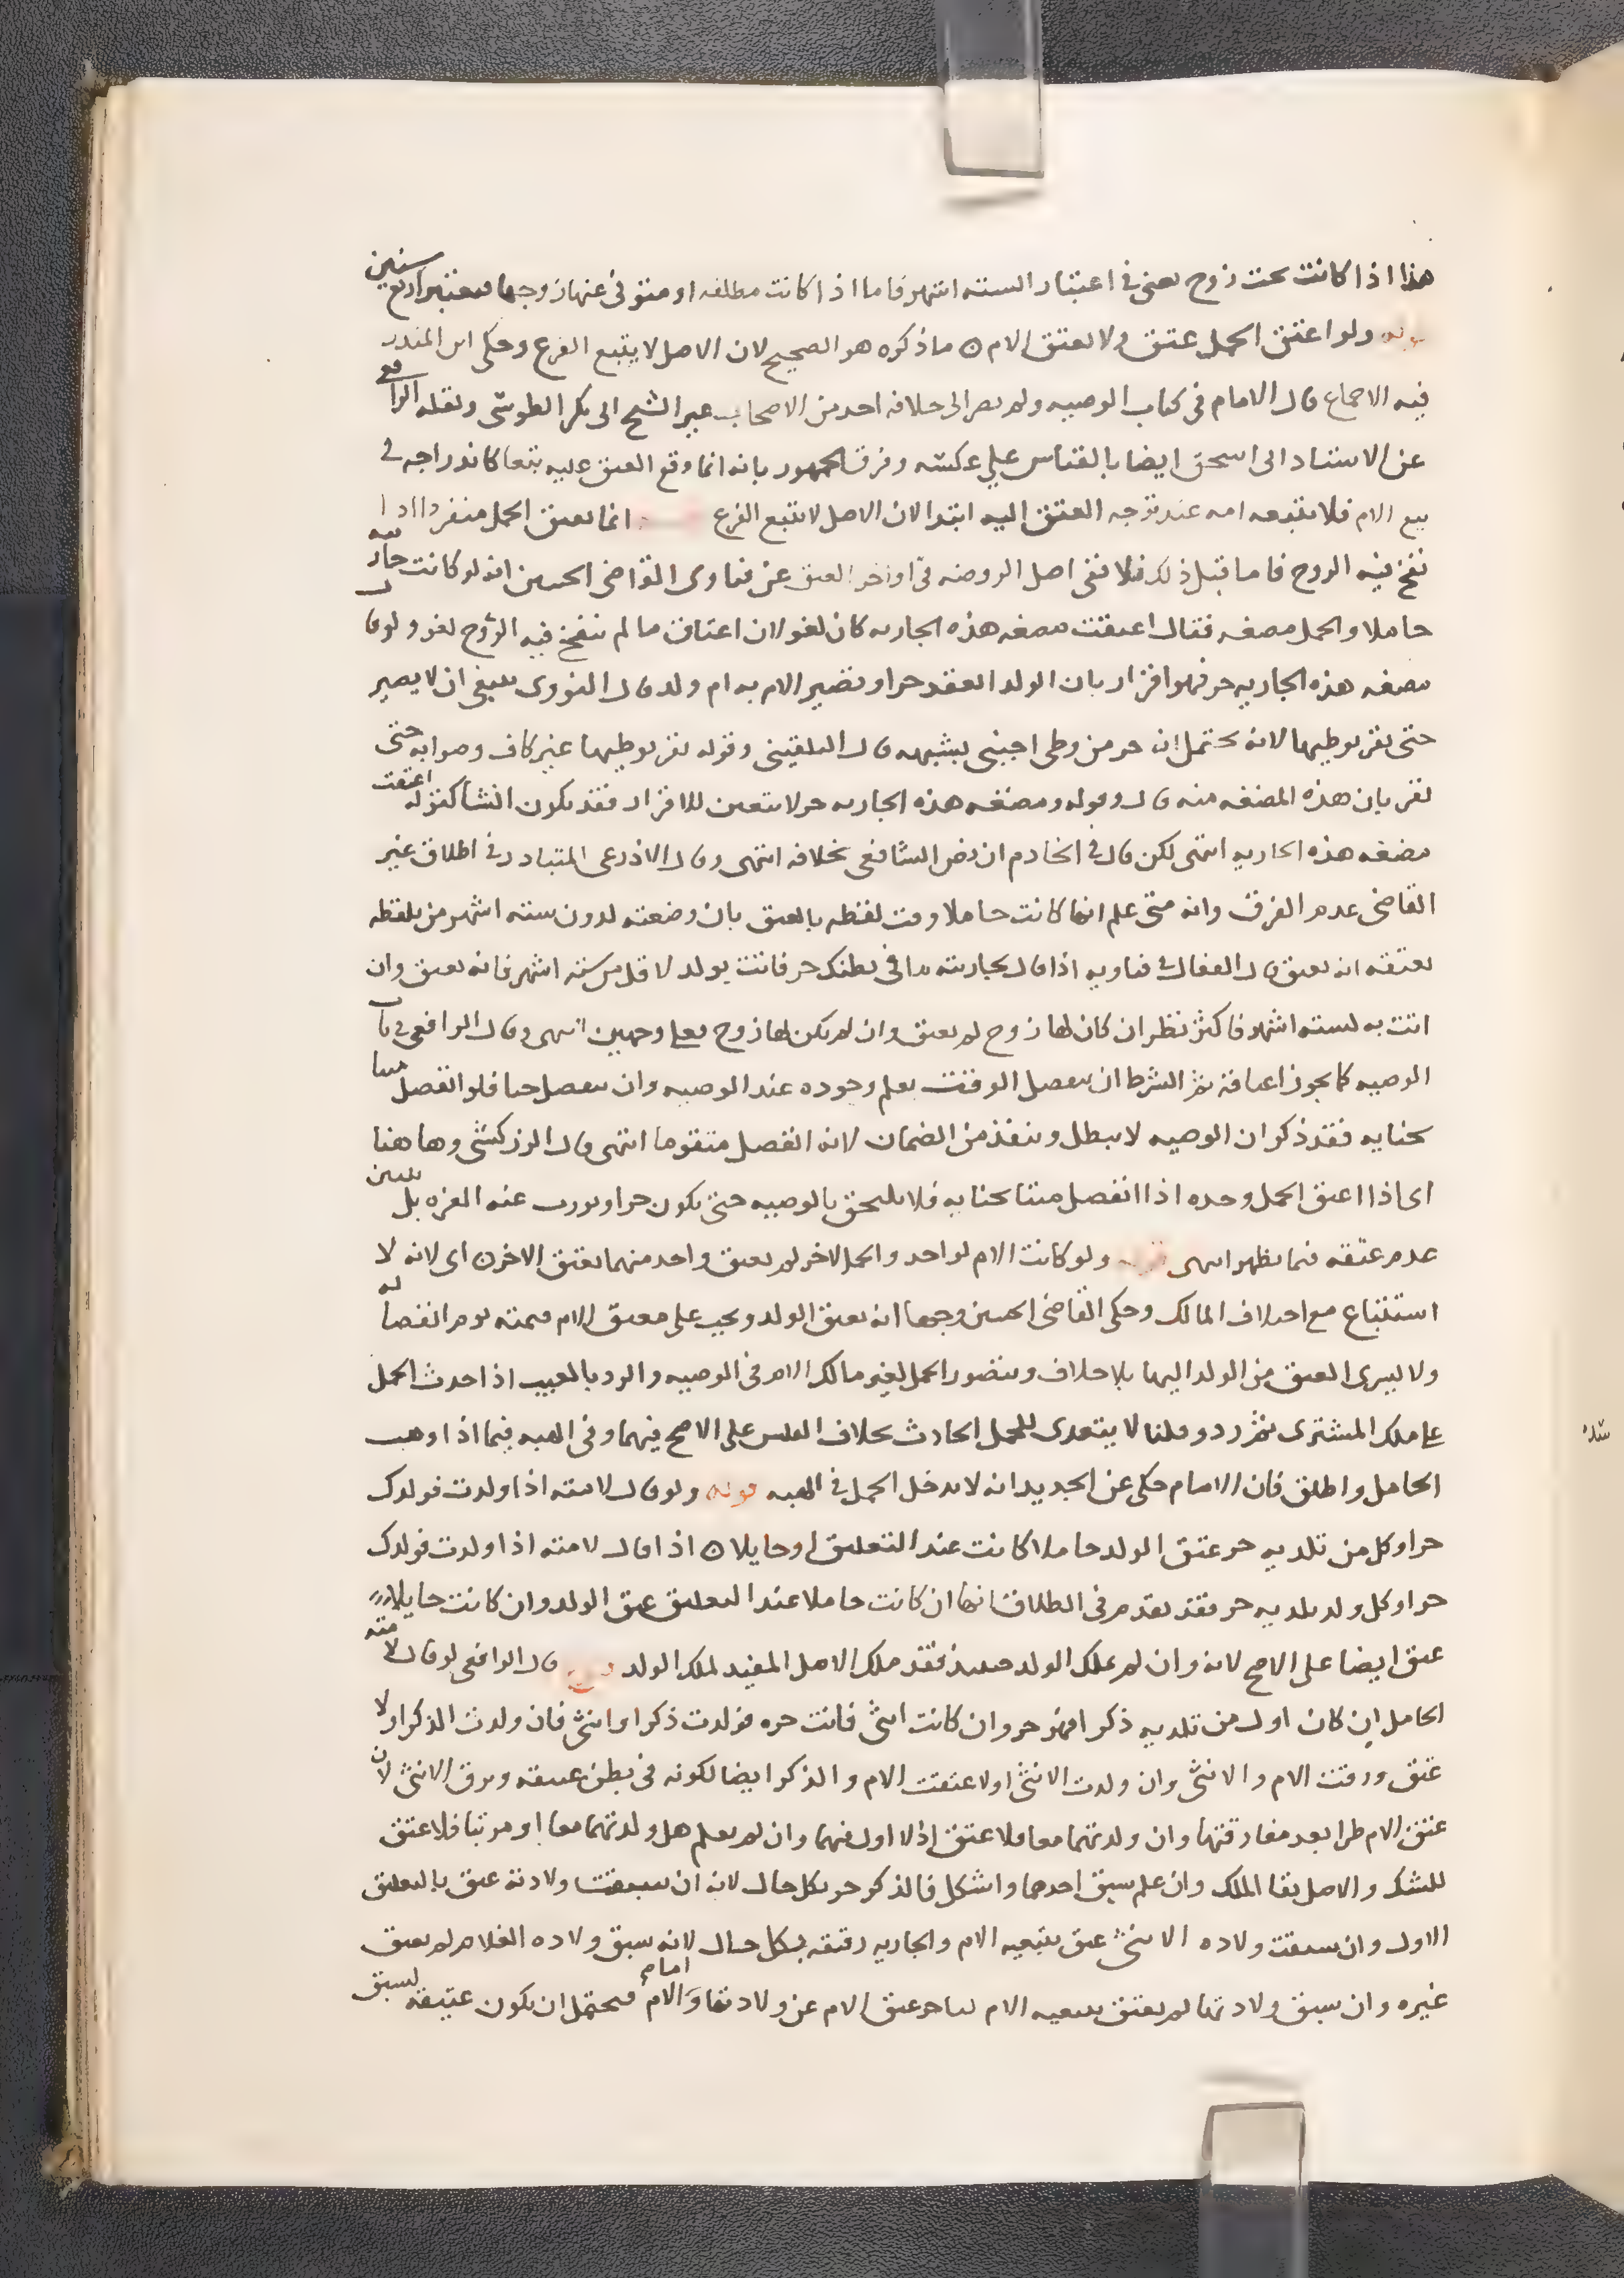 هذا اذا كانت تحت زوج يعني في اعتبار الستة اشهر فاما اذا كانت مطلقه او متوفى عنها زوجها فيعتبر اربع سنين
قوله ولو اعتق الحمل عتق ولا يعتق الام ن ما ذكره هو الصحيح لان الاصل لا يتبع الفرع وحكى ابن المنذر
فيه الاجماع قال الامام في كتاب الوصيه ولم يصر الى خلافه احد من الاصحاب غير الشيخ ابى بكر الطوسي ونقله الرافعي
عن الاستاد ابى اسحق ايضا بالقياس علي عكسه وفرق الجمهور بانه انما وقع العتق عليه تبعا كاندراجه في
بيع الام فلا يتبعه امه عند توجه العتق اليه ابتدا لان الاصل لا يتبع الفرع انما يعتق الحمل منفردا اذا
نفخ فيه الروح فاما قبل ذلك فلا ففى اصل الروضه في اواخر العتق عن فتاوى القاضى الحسين انه لو كانت جاريته
حاملا والحمل مضغه فقال اعتقت مضغه هذه الجاريه كان لغوا لان اعتاق ما لم تنفخ فيه الروح لغو ولو قال
مضغه هذه الجاريه حر فهو اقرار بان الولد انعقد حرا وتصير الام به ام ولد قال النووى ينبغى ان لا يصير
حتى يقر بوطيها لانه يحتمل انه حر من وطى اجنبى بشبهه قال البلقينى وقوله يقر بوطيها غير كاف وصوابه حتى
يقر بان هذه المضغه منه قال وقوله ومضغه هذه الجاريه حر لا يتعين للاقرار فقد يكون انشا كقوله اعتقت
مضغه هذه الجاريه انتهى لكن قال في الخادم ان نص الشافعى بخلافه انتهى وقال الاذرعى المتبادر في اطلاق غير
القاضى عدم الفرق وانه متى علم انها كانت حاملا وقت لفظه بالعتق بان وضعته لدون سته اشهر من تلفظه
بعتقه انه يعتق قال القفال في فتاويه اذا قال لجاريته ما في بطنك حر فاتت بولد لاقل من سته اشهر فانه يعتق وان
اتت به لسته اشهر فاكثر نظر ان كان لها زوج لم يعتق وان لم يكن لها زوج فعلى وجهين انتهى وقال الرافعى في باب
الوصيه كما يجوز اعتاقه ثم الشرط ان ينفصل لوقت يعلم وجوده عند الوصيه وان ينفصل حيا فلو انفصل ميتا
بجنايه فقد ذكر ان الوصيه لا تبطل وتنفذ من الضمان لانه انفصل متقوما انتهى قال الزركشى وها هنا
اى اذا اعتق الحمل وحده اذا انفصل ميتا بجنايه فلا يلتحق بالوصيه حتى يكون حرا ويورث عنه الغره بل يتبين
عدم عتقه فيما يظهر انتهى قوله ولو كانت الام لواحد والحمل لاخر لم يعتق واحد منهما بعتق الاخر ن اى لانه لا
استتباع مع اختلاف المالك وحكى القاضى الحسين وجها انه يعتق الولد ويجب على معتق الام قيمته يوم انفصاله
ولا يسرى العتق من الولد اليها بلا خلاف ويتصور الحمل لغير مالك الام في الوصيه والرد بالعيب اذا حدث الحمل
على ملك المشترى ثم رد وقلنا لا يتعدى للحمل الحادث بخلاف الفلس على الاصح فيهما وفي الهبه فيما اذا وهب
الحامل واطلق فان الامام حكى عن الجديد انه لا يدخل الحمل في الهبه قوله ولو قال لامته اذا ولدت فولدك
حر او كل من تلديه حر عتق الولد حاملا كانت عند التعليق او حايلا ن اذا قال لامته اذا ولدت فولدك
حر او كل ولد تلديه حر فقد تقدم في الطلاق انها ان كانت حاملا عند التعليق عتق الولد وان كانت حايلا
عتق ايضا على الاصح لانه وان لم يملك الولد حينئذ فقد ملك الاصل المفيد لملك الولد قال الرافعى لو قال لامته
الحامل ان كان اول من تلديه ذكرا فهو حر وان كانت انثى فانت حره فولدت ذكرا وانثى فان ولدت الذكر اولا
عتق ورقت الام والانثى وان ولدت الانثى اولا عتقت الام والذكر ايضا لكونه في بطن عتيقه وترق الانثى لان
عتق الام طرا بعد مفارقتها وان ولدتهما معا فلا عتق اذ لا اول فيهما وان لم يعلم هل ولدتهما معا او مرتبا فلا عتق
للشك والاصل بقا الملك وان علم سبق احدهما واشكل فالذكر حر بكل حال لانه ان سبقت ولادته عتق بالتعليق
الاول وان سبقت ولاده الانثى عتق بتبعيه الام والجاريه رقيقه بكل حال لانه سبق ولاده الغلام لم يعتق
غيره وان سبق ولادتها لم يعتق بتبعيه الام لتاخر عتق الام عن ولادتها واما الام فيحتمل ان يكون عتيقه لسبق